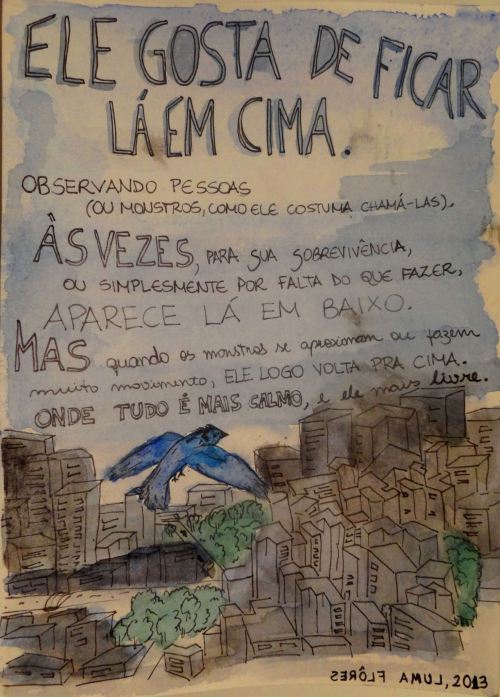 ELE GOSTA DE FICAR
LÁ EM CIMA.
OBSERVANDO PESSOAS
(OU MONSTROS, COMO ELE COSTUMA CHAMÁ-LAS).
ÀS VEZES, PARA SUA SOBREVIVÊNCIA,
OU SIMPLESMENTE POR FALTA DO QUE FAZER,
APARECE LÁ EM BAIXO.
MAS quando os monstros se aproximam ou fazem
muito movimento, ELE LOGO VOLTA PRA CIMA.
ONDE TUDO É MAIS CALMO, e ele mais livre.
LUMA FLÔRES, 2013